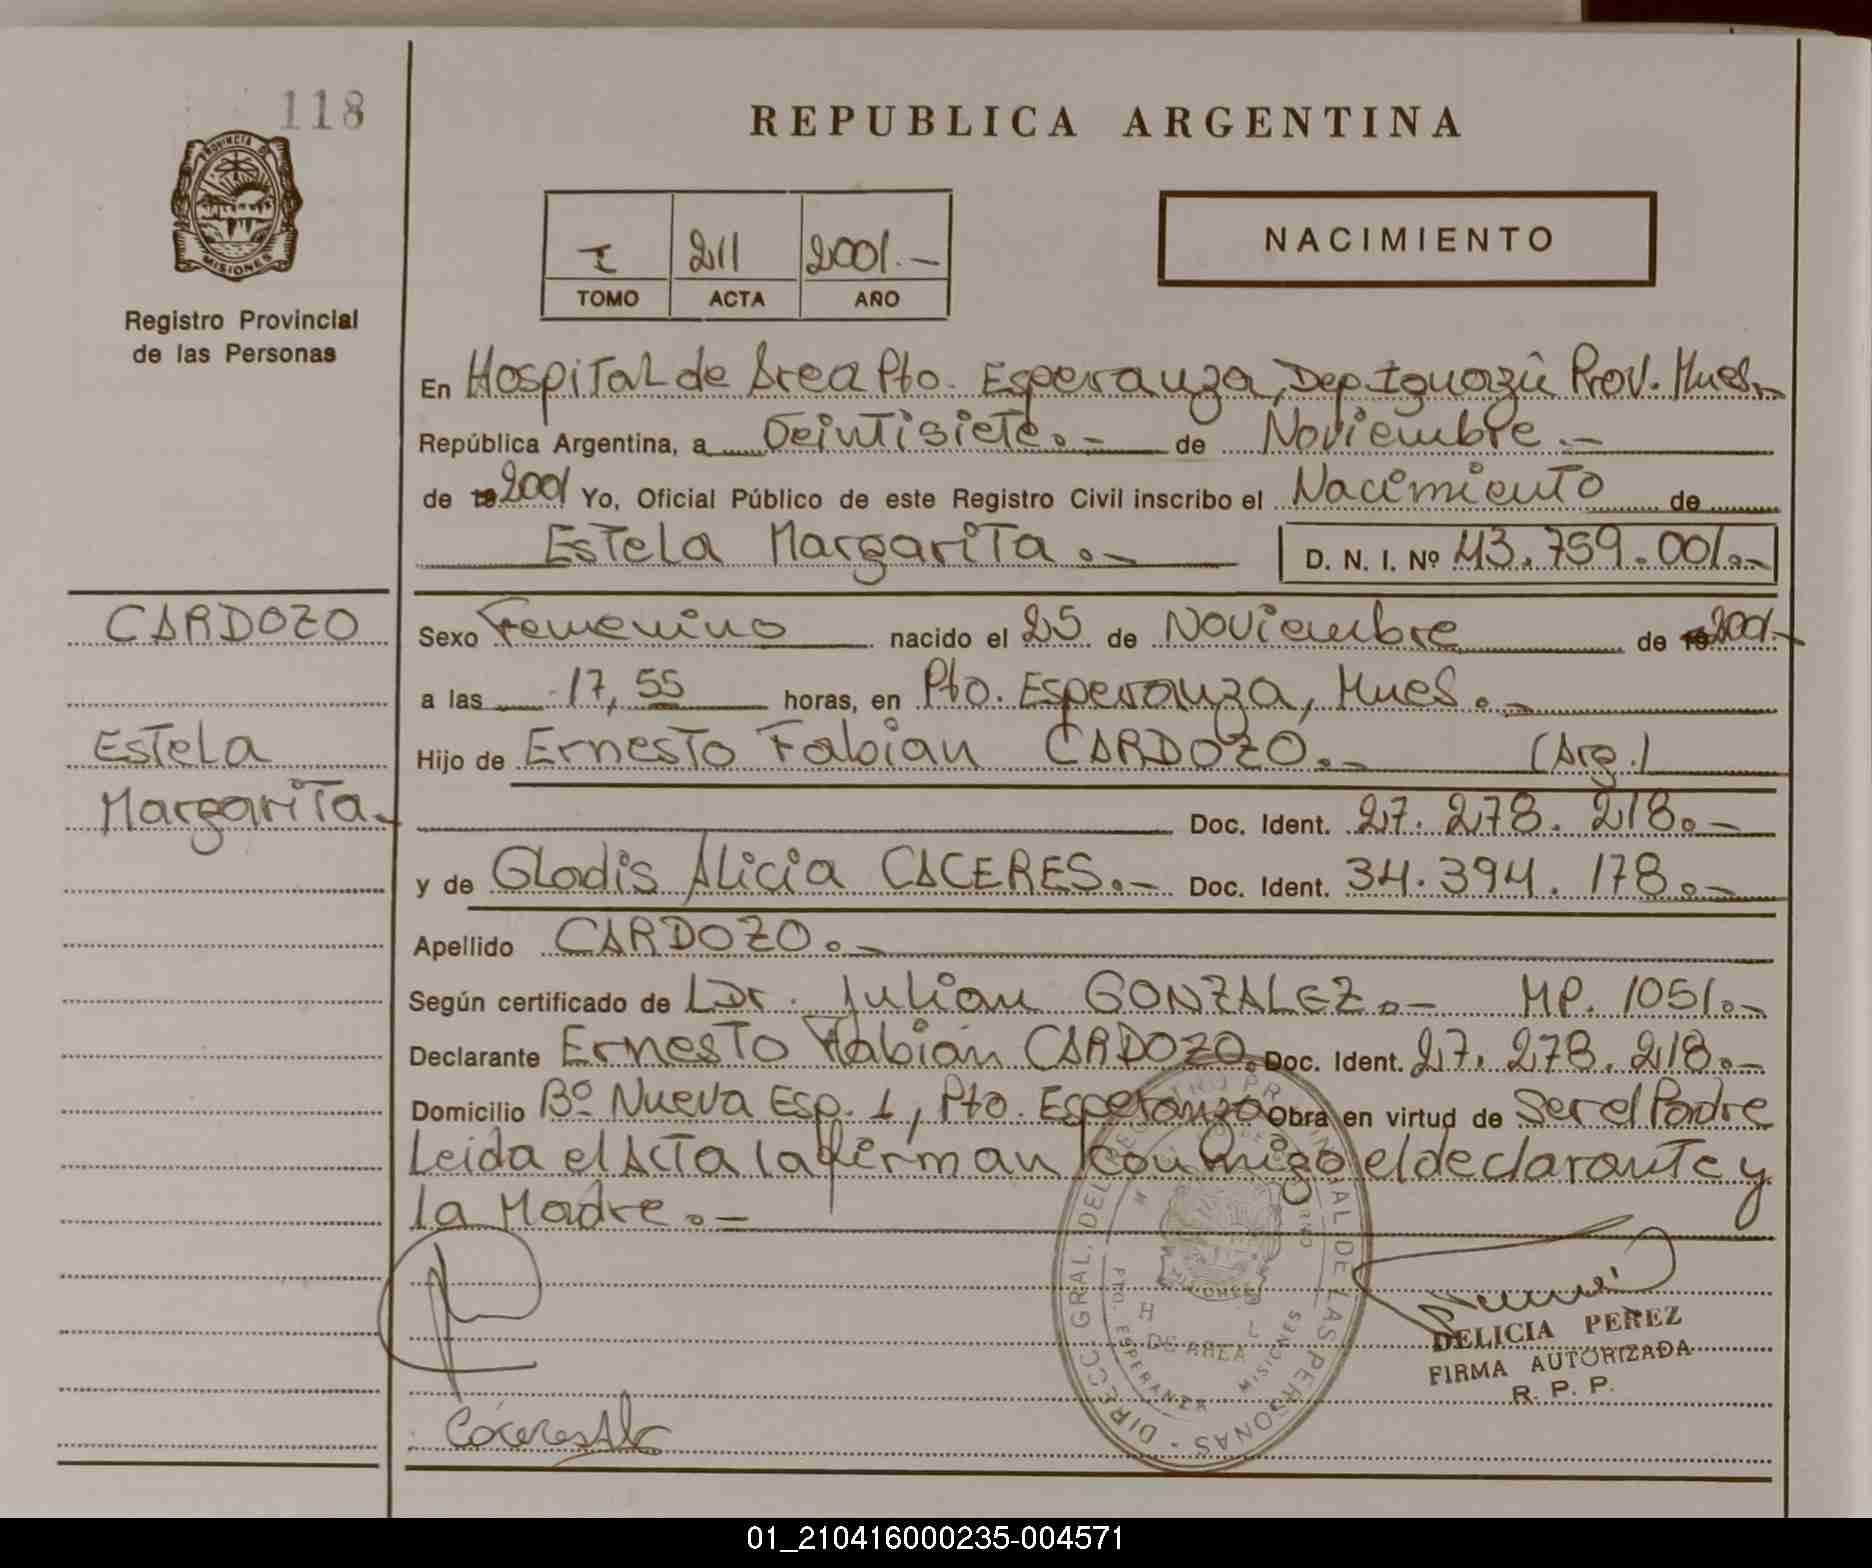 118
PROVINCIA DE
MISIONES
Registro Provincial
de las Personas
REPUBLICA ARGENTINA
I 211 2001.-
TOMO ACTA AÑO
NACIMIENTO
En Hospital de Area Pto. Esperanza, Dep. Iguazú Prov. Mnes.-
República Argentina, a Veintisiete.- de Noviembre.-
de 19 2001 Yo, Oficial Público de este Registro Civil inscribo el Nacimiento de
Estela Margarita.- D. N. I. Nº 43.759.001.-
CARDOZO
Estela
Margarita.-
Sexo Femenino nacido el 25 de Noviembre de 19 2001.-
a las 17,55 horas, en Pto. Esperanza, Mnes.-
Hijo de Ernesto Fabian CARDOZO.- (Arg.)
Doc. Ident. 27.278.218.-
y de Gladis Alicia CACERES.- Doc. Ident. 34.394.178.-
Apellido CARDOZO.-
Según certificado de LDr. Julian GONZALEZ.- MP. 1051.-
Declarante Ernesto Fabián CARDOZO. Doc. Ident. 27.278.218.-
Domicilio Bº Nueva Esp. 1, Pto. Esperanza Obra en virtud de ser el Padre
Leida el Acta la firman conmigo el declarante y
la Madre.-
DIRECC. GRAL. DEL REGISTRO PROVINCIAL DE LAS PERSONAS
DE AREA
PTO. ESPERANZA MISIONES
DELICIA PEREZ
FIRMA AUTORIZADA
R. P. P.
Cáceres Al
01_210416000235-004571